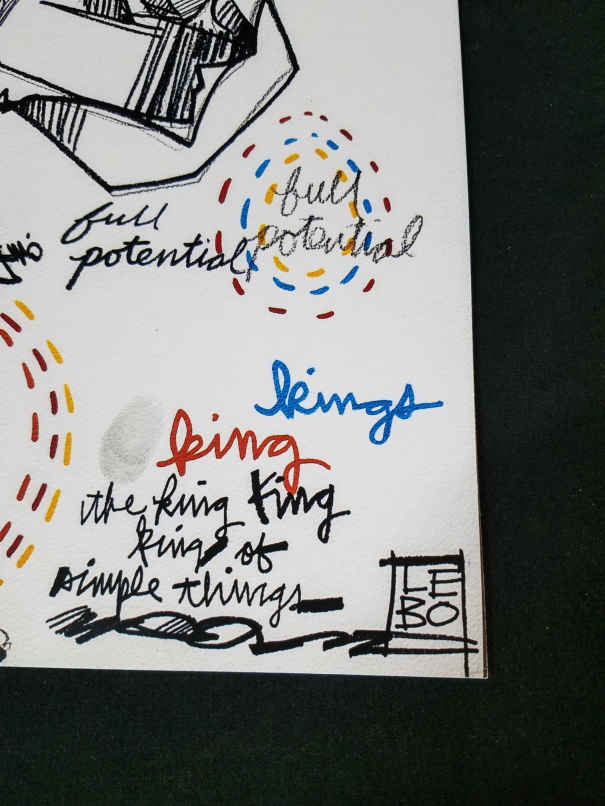 full
potential
full
potential,
kings
king
the king King
king of
simple things
LE
BO